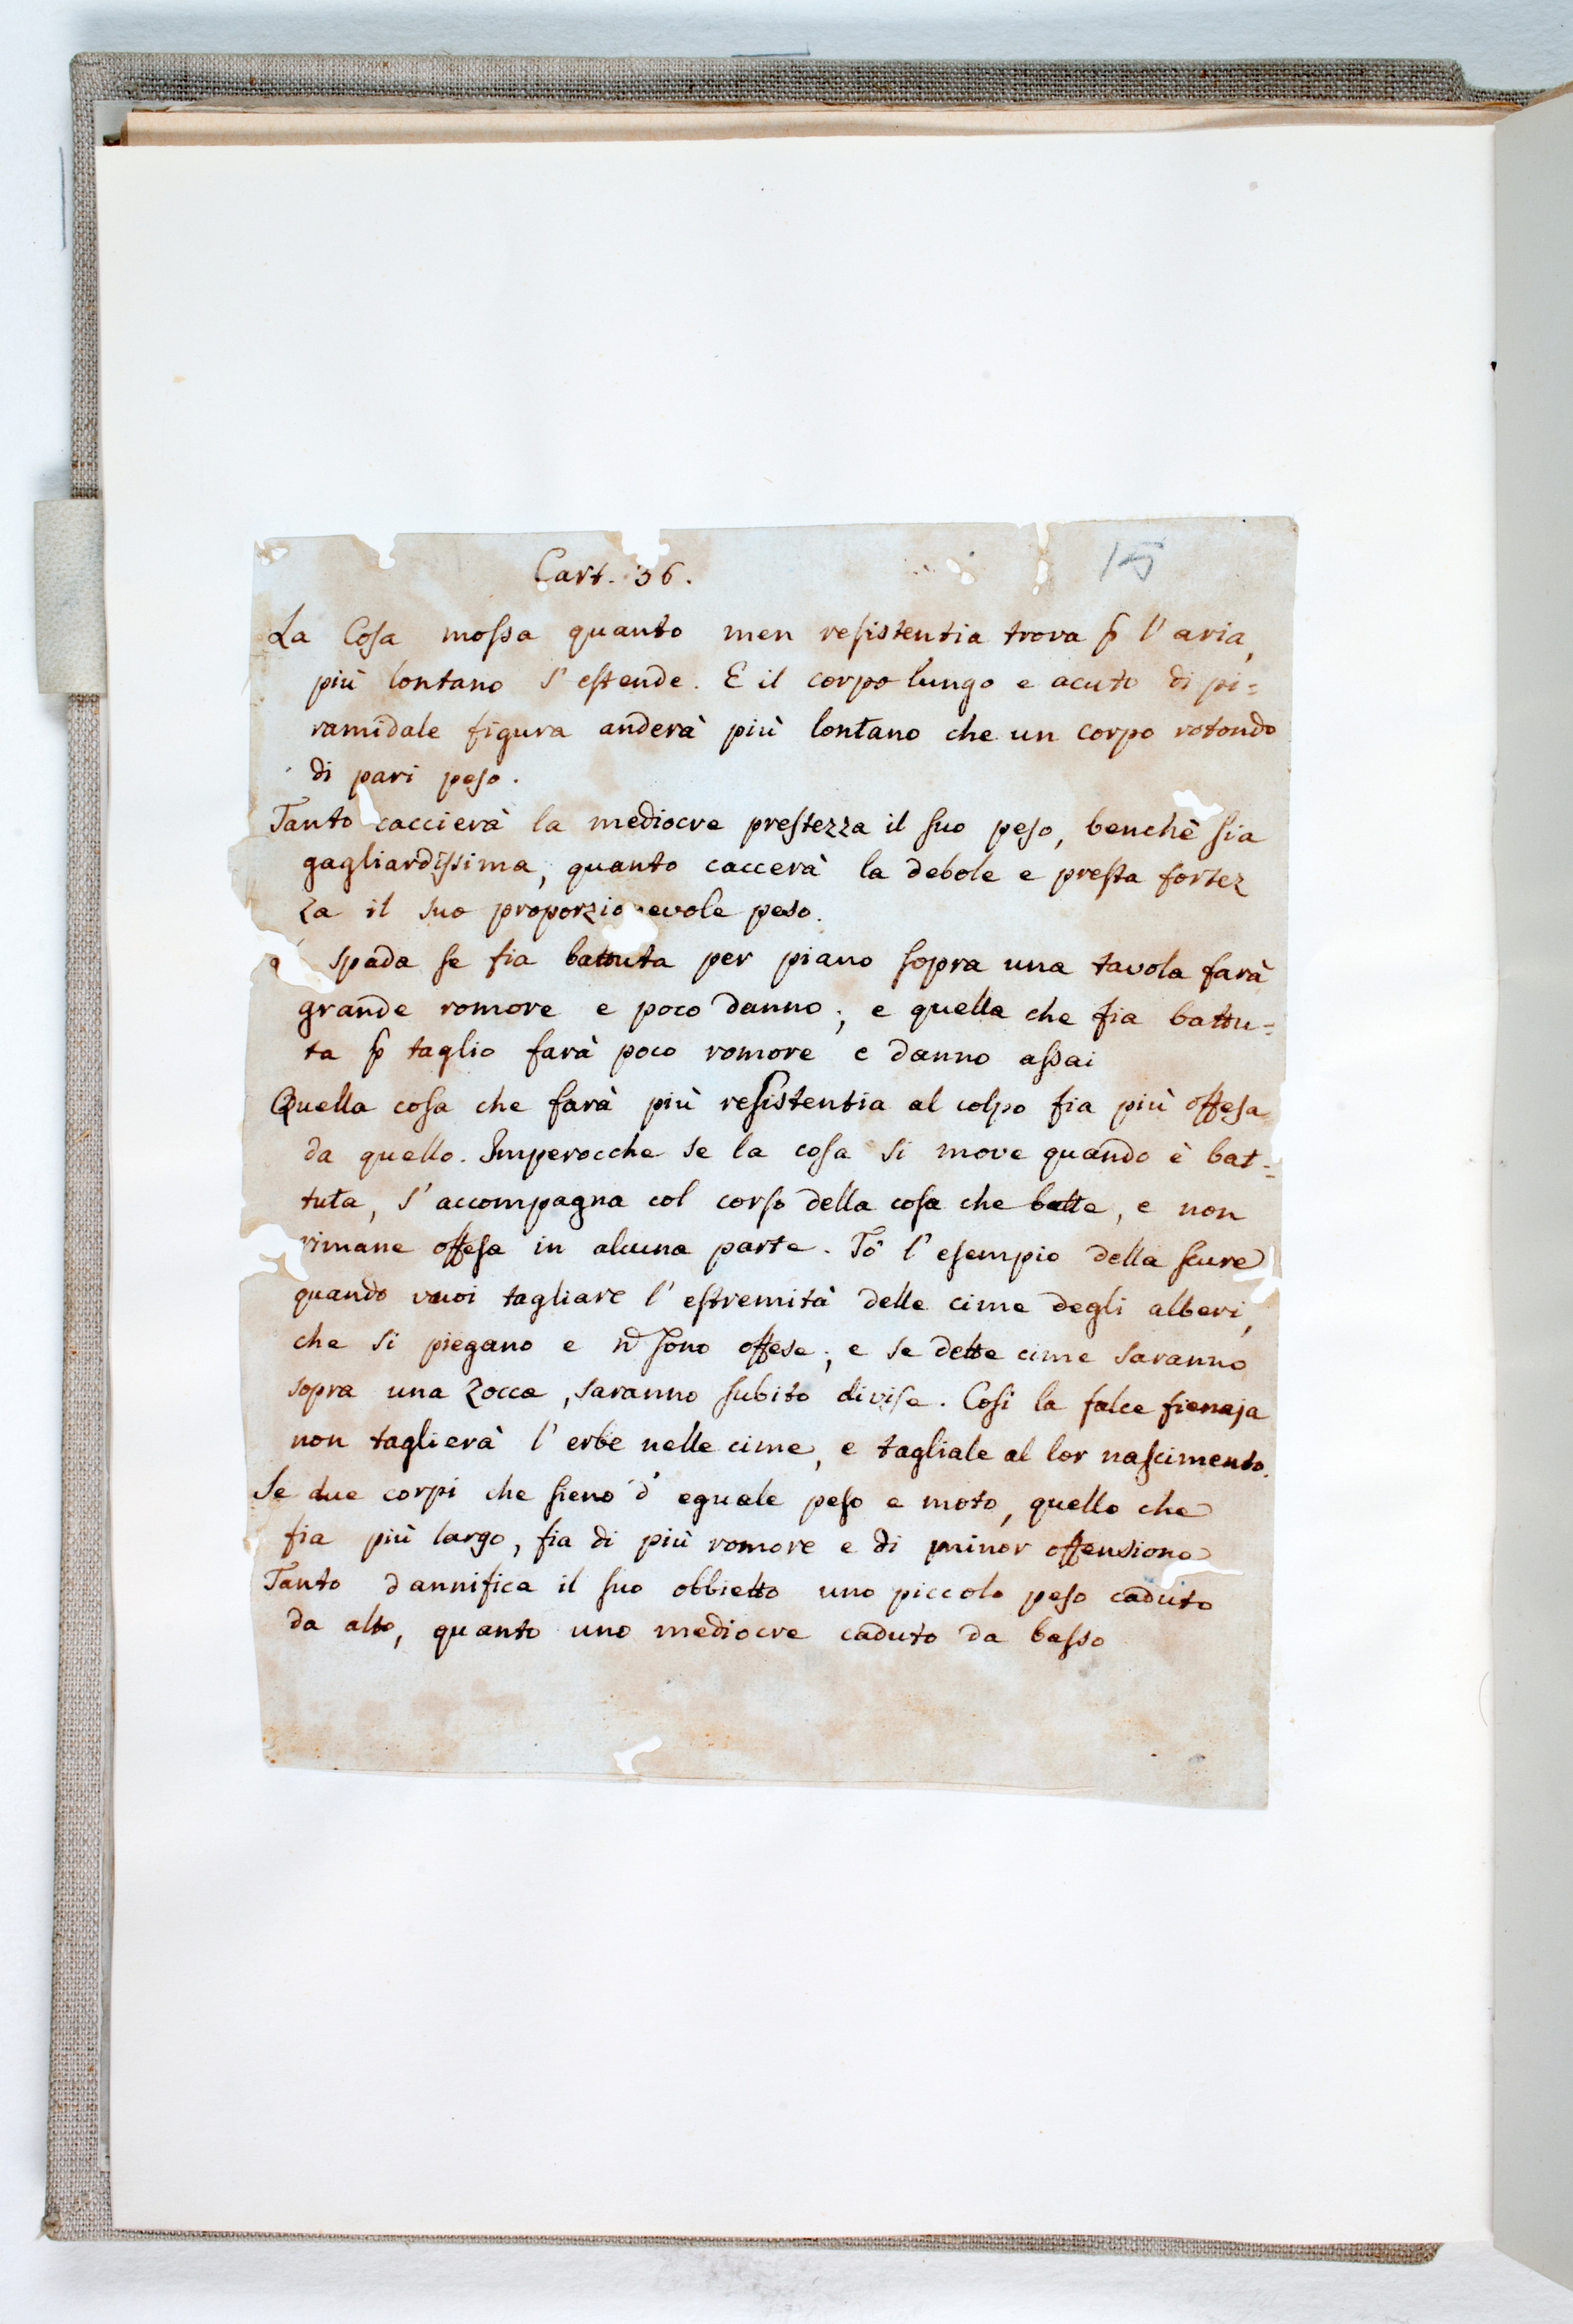 Cart. 36.
15
La Cosa mossa quanto men resistentia trova p̄ l' aria,
più lontano s' estende. E il corpo lungo e acuto di pi=
ramidale figura anderà più lontano che un corpo rotondo
di pari peso.
Tanto caccierà la mediocre prestezza il suo peso, benchè sia
gagliardissima, quanto caccerà la debole e presta fortez
za il suo proporzionevole peso.
spada se fia battuta per piano sopra una tavola farà
grande romore e poco danno; e quella che fia battu=
ta p̄ taglio farà poco romore e danno assai
Quella cosa che farà più resistentia al colpo fia più offesa
da quello. Imperocche se la cosa si move quando è bat=
tuta, s' accompagna col corso della cosa che batte, e non
rimane offesa in alcuna parte. Tô l' esempio della scure
quando vuoi tagliare l' estremità delle cime degli alberi,
che si piegano e n̄ sono offese; e se dette cime saranno
sopra una zocca, saranno subito divise. Così la falce fienaja
non taglierà l' erbe nelle cime, e tagliale al lor nascimento.
Se due corpi che sieno d' eguale peso e moto, quello che
fia più largo, fia di più romore e di minor offensione
Tanto dannifica il suo obbietto uno piccolo peso caduto
da alto, quanto uno mediocre caduto da basso